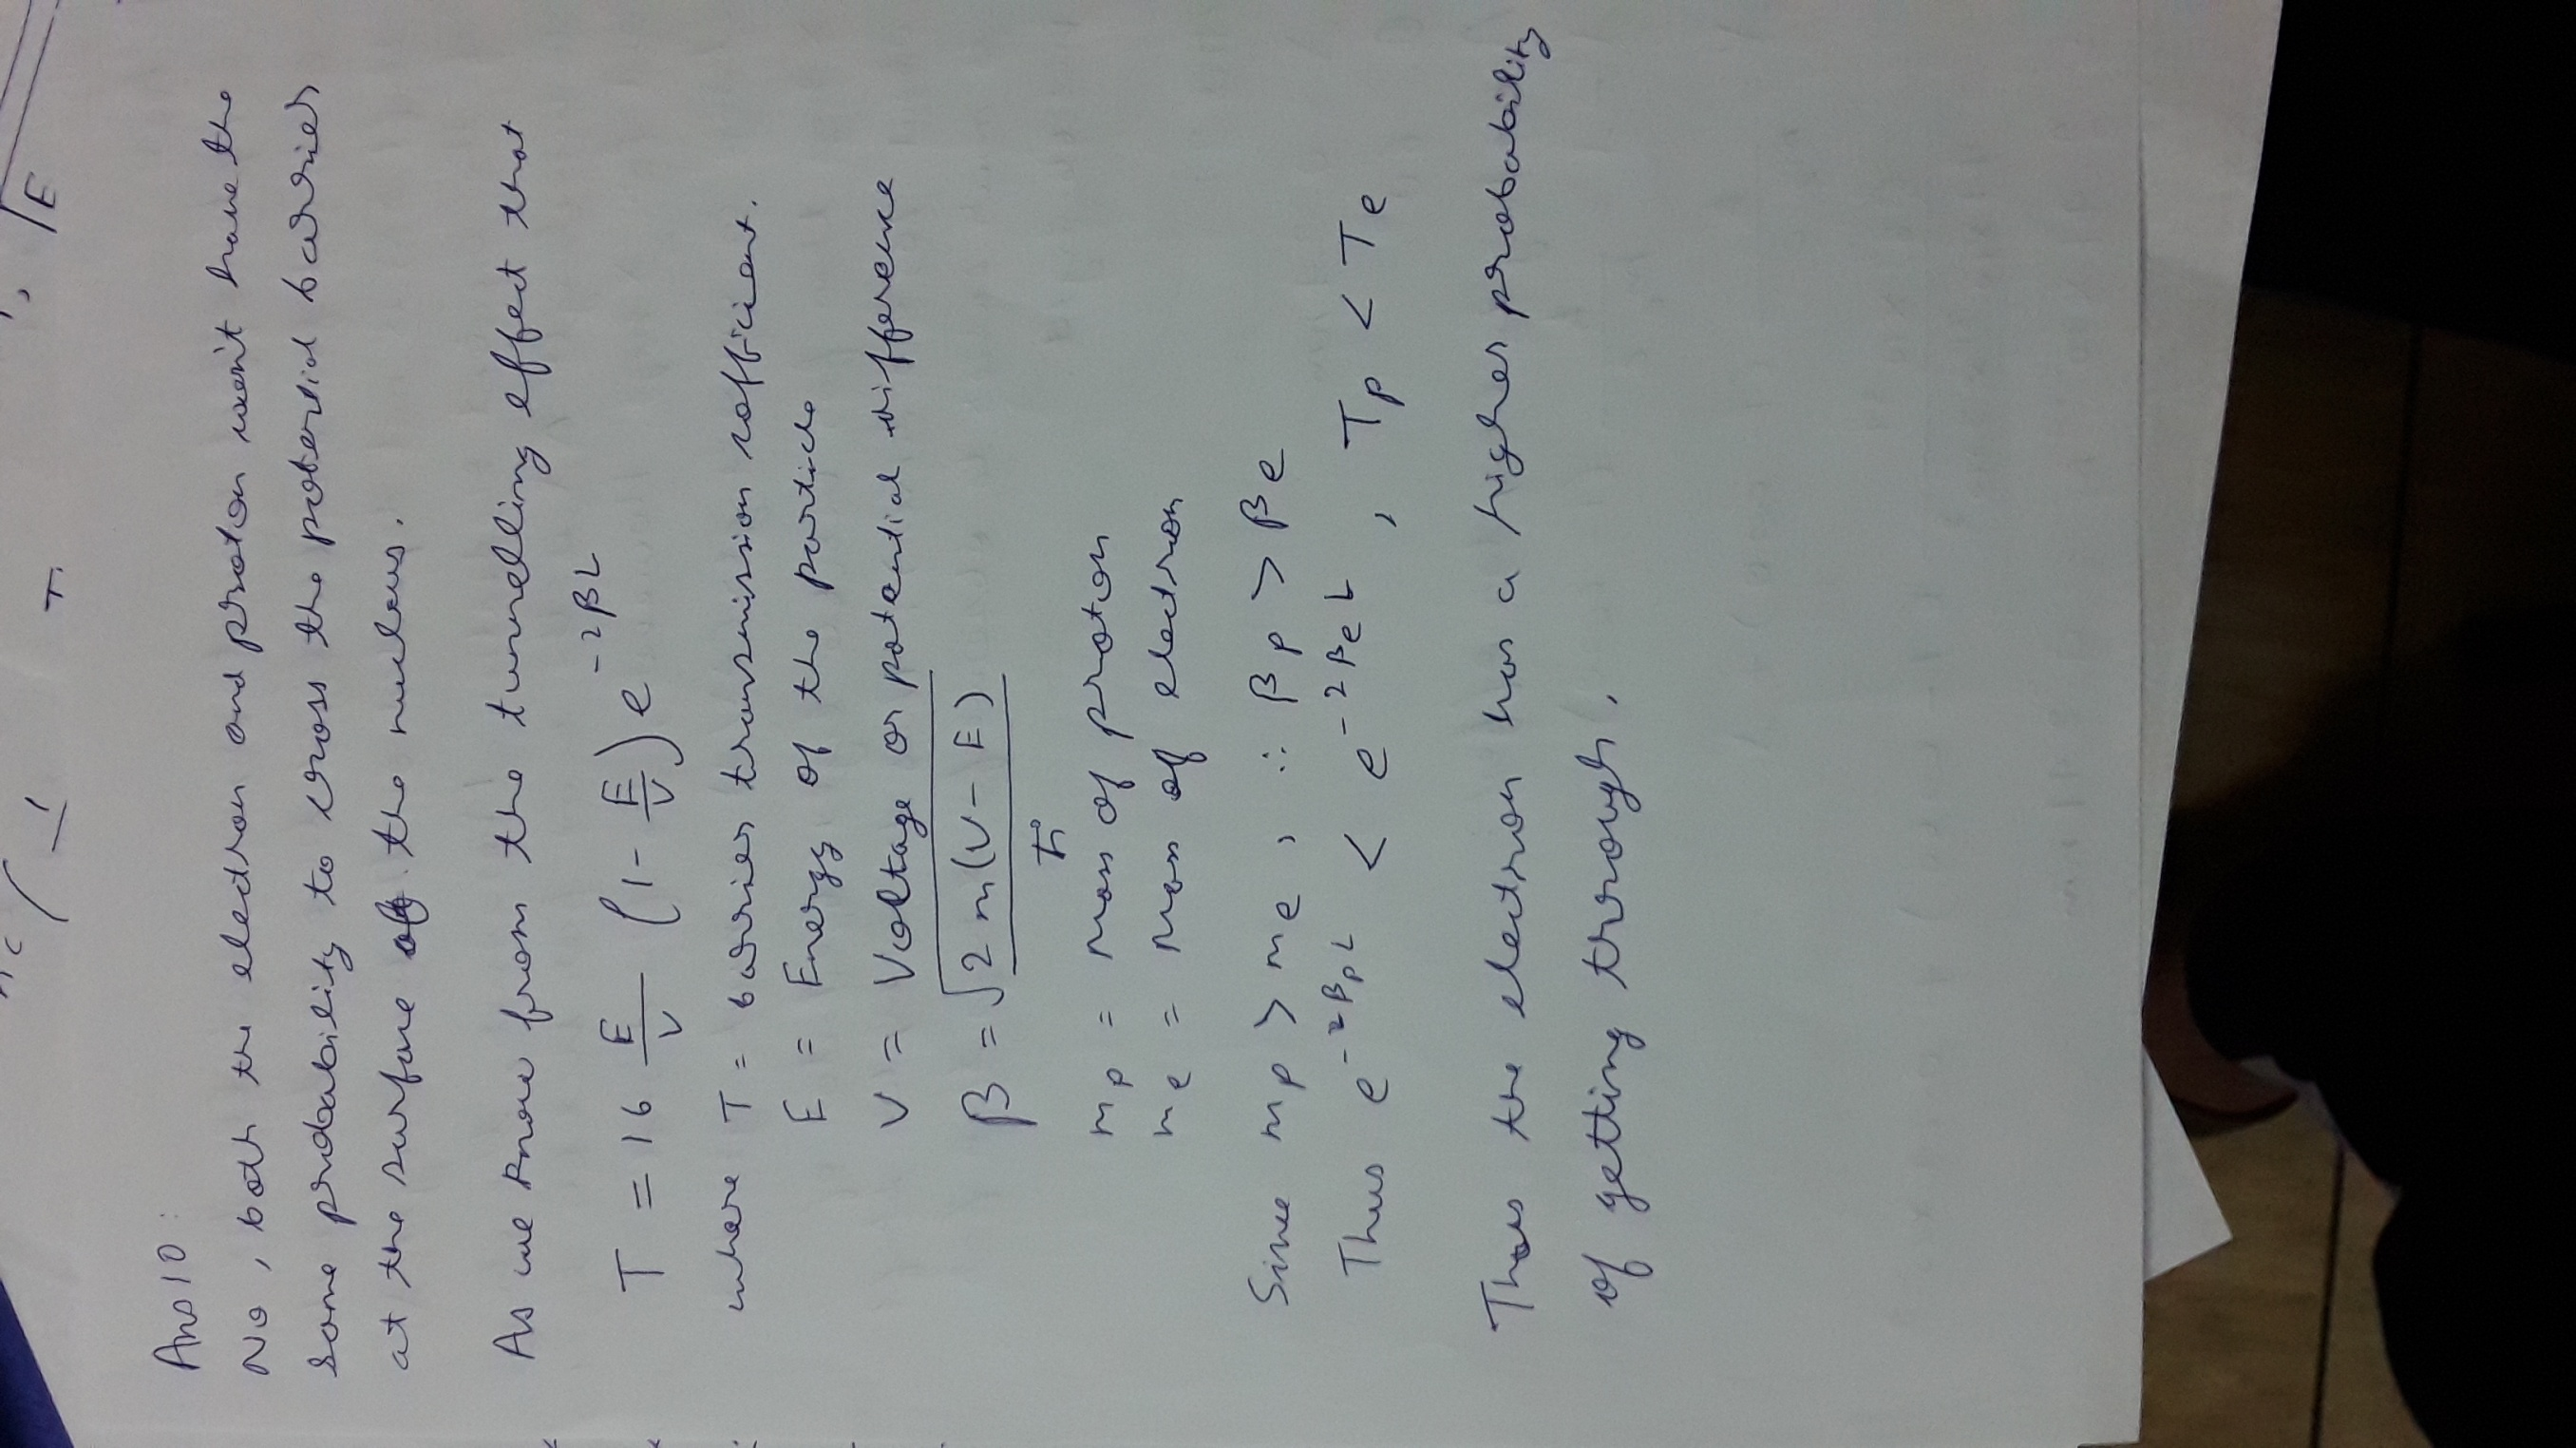 √E
Ans 10:
No, both the electron and proton won't have the
same probability to cross the potential barrier
at the surface of the nucleus.
As we know from the tunnelling effect that
T = 16 E/V (1 - E/V) e^-2βL
where T = barrier transmission cofficient.
E = Energy of the particle
V = Voltage or potential difference
β = √2m(V-E) / ħ
mp = mass of proton
me = mass of electron
Since mp > me, ∴ βp > βe
Thus e^-2βpL < e^-2βeL, Tp < Te
Thus the electron has a higher probability
of getting through.